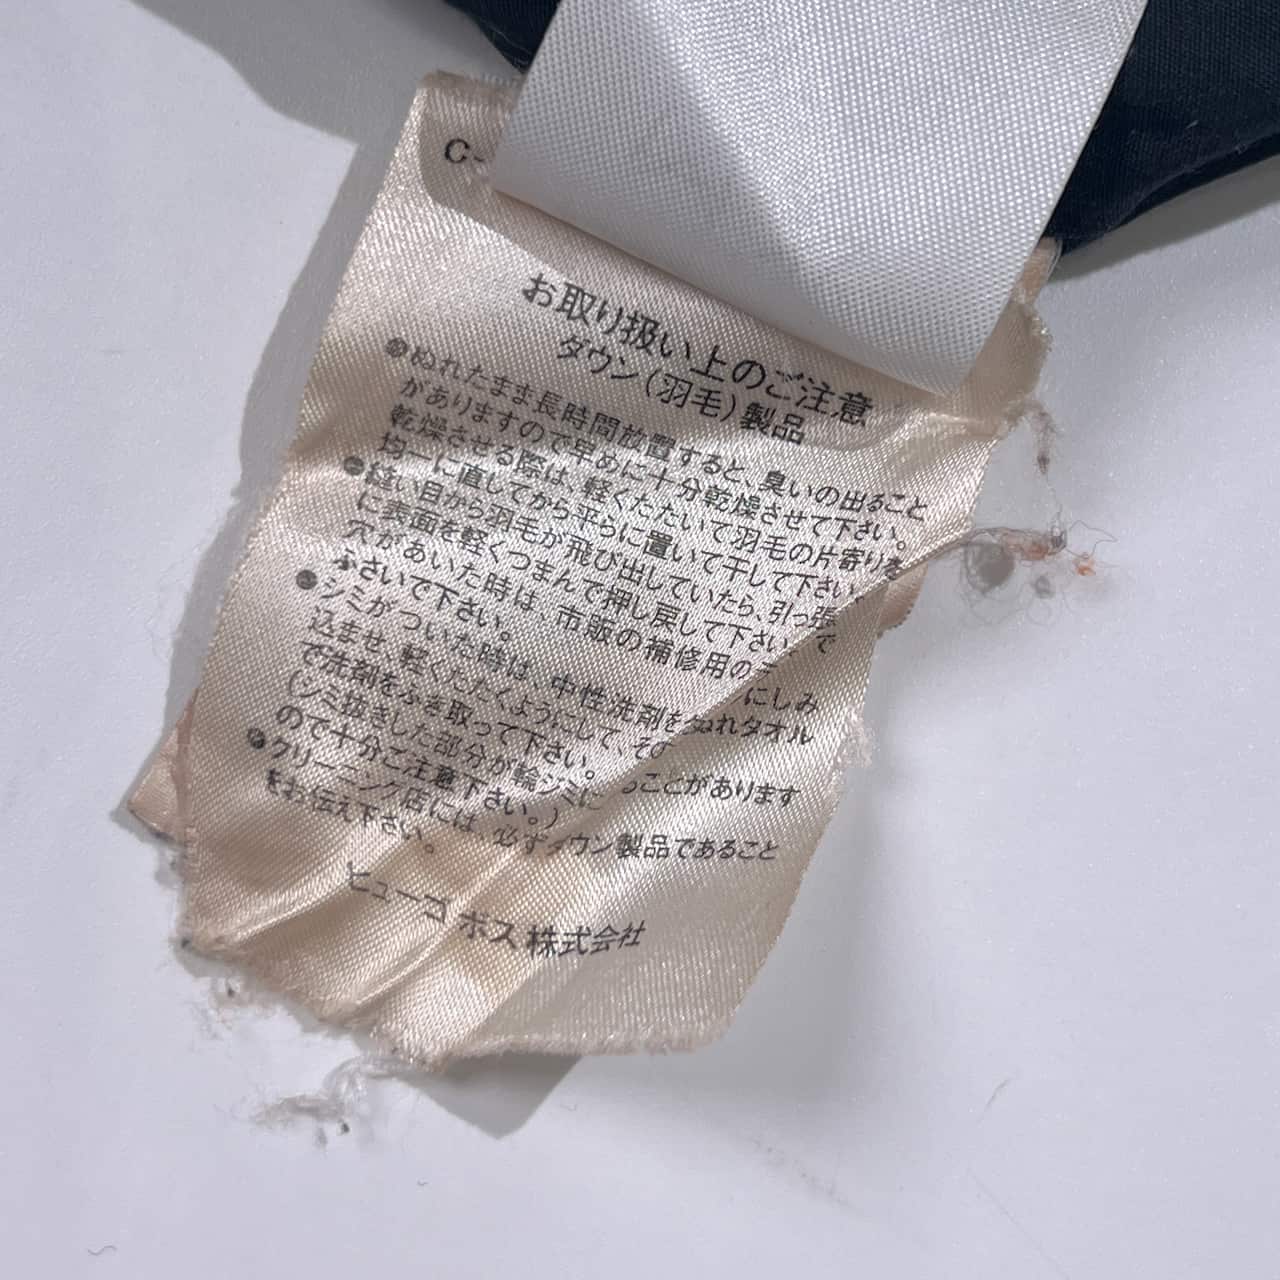 C-
お取り扱い上のご注意
ダウン(羽毛)製品
●ぬれたまま長時間放置すると、臭いの出ること
がありますので早めに十分乾燥させて下さい。
乾燥させる際は、軽くたたいて羽毛の片寄りを
均一に直してから平らに置いて干して下さい。
●縫い目から羽毛が飛び出していたら、引っ張
に表面を軽くつまんで押し戻して下さい。で
穴があいた時は、市販の補修用の
ふさいで下さい。
●シミがついた時は、中性洗剤を にしみ
込ませ、軽くたたくようにして、そ ぬれタオル
で洗剤をふき取って下さい。
(シミ抜きした部分が輪ジミに ることがあります
ので十分ご注意下さい。)
●クリーニング店には、必ずダウン製品であること
をお伝え下さい。
ヒューゴ ボス株式会社